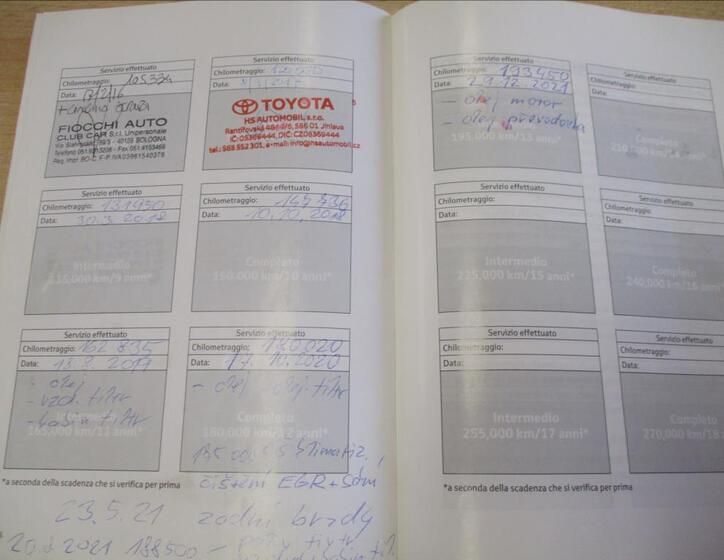 Servizio effettuato
Chilometraggio: 105334
Data:
FIOCCHI AUTO
CLUB CAR S.r.l. Unipersonale
40128 BOLOGNA
Servizio effettuato
Chilometraggio:
Data:
TOYOTA
HS AUTOMOBIL s.r.o.
Rantířovská 586 01 Jihlava
IČ:05369444, DIČ: CZ05369444
tel.: 568 552 301, e-mail: info@hsautomobil.cz
Servizio effettuato
Chilometraggio: 131450
Data: 30.3.2018
Intermedio
135,000 km/9 anni*
Servizio effettuato
Chilometraggio: 145 536
Data: 10.10.2018
Completo
150,000 km/10 anni*
Servizio effettuato
Chilometraggio: 162 835
Data: 13.8.2019
- olej
- vzd. filtr
- kabin filtr
Intermedio
165,000 km/11 anni*
Servizio effettuato
Chilometraggio: 180020
Data: 17.10.2020
- olej - olej. filtr
Completo
180,000 km/12 anni*
čištění EGR + sání
*a seconda della scadenza che si verifica per prima
23.5.21 zadní brzdy
2021 188500 -
Servizio effettuato
Chilometraggio: 193450
Data: 29.12.2021
- olej motor
- olej převodovka
195,000 km/13 anni*
Servizio effettuato
Chilometraggio:
Data:
Completo
Servizio effettuato
Chilometraggio:
Data:
Intermedio
225,000 km/15 anni*
Servizio effettuato
Chilometraggio:
Data:
Completo
240,000 km/16 anni*
Servizio effettuato
Chilometraggio:
Data:
Intermedio
255,000 km/17 anni*
Servizio effettuato
Chilometraggio:
Data:
Completo
270,000 km/18
*a seconda della scadenza che si verifica per prima